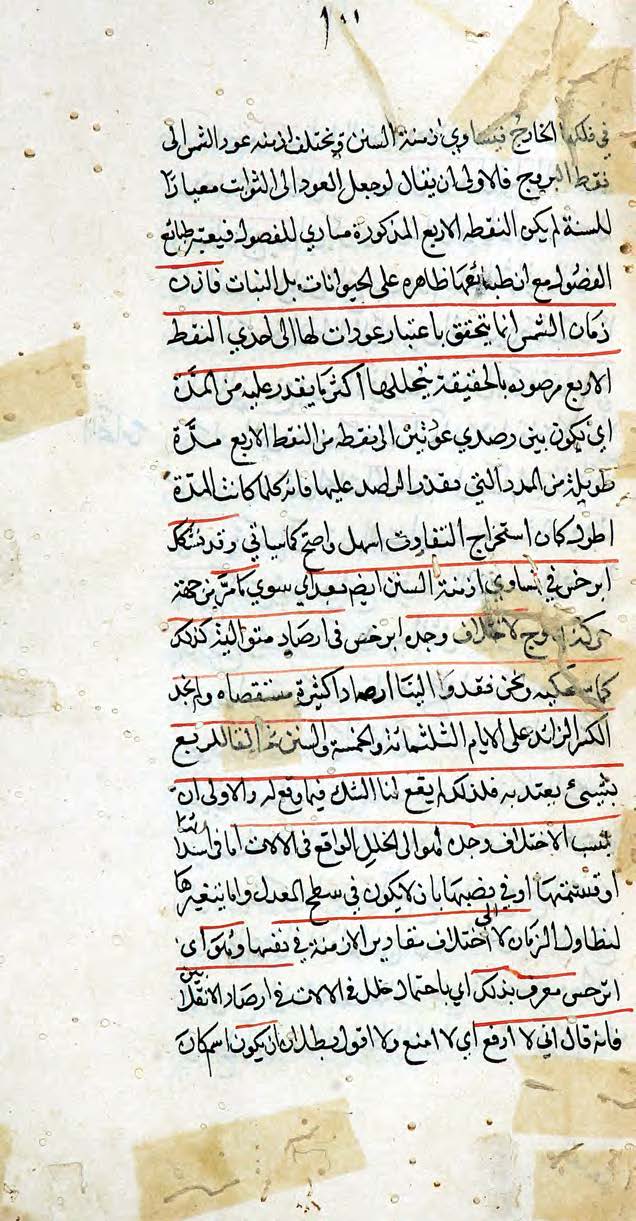 ١٠٠
في فلكها الخارج فيتساوي ازمنة السنن ويختلف ازمنه عود الشمس الى
نقط البروج فالاولى ان يقال لوجعل العود الى الثوابت معيارا
للسنة لم يكن النقطه الاربع المذكورة مبادي للفصول فيعتبر طبائع
الفصول مع ان طبائعها ظاهره على الحيوانات بل النبات فاذن
زمان الشمس انما يتحقق باعتبار عودات لها الى احدي النقط
الاربع مرصوده بالحقيقة يتخللها اكثر ما يقدر عليه من المدة
اي تكون بين رصدي عودتين الى نقطه من النقط الاربع مدة
طويلة من المدد التي يقدر الراصد عليها فانه كلما كانت المدة
اطول كان استخراج التفاوت اسهل واصح كما سياتي وقد تشكك
ابرخس في تساوي ازمنة السنن ايضا بعد اي سوي ما مر من جهة
حركة الاوج لاختلاف وجده ابرخس في ارصاد متواليه كذلك
كما سنحكيه ونحن فقد توالينا ارصادا كثيرة مستقصاه ولم نجد
الكسر الزائد على الايام الثلثمائة والخمسة والستين مخالفا للربع
بشيئ يعتد به فلذلك لم يقع لنا الشك فيما وقع له والاولى ان
ينسب الاختلاف وجده لهو الى الخلل الواقع في الالات اما في
او قسمتها او في نصبها بان لا يكون في سطح المعدل واما بتغيرها
لتطاول الزمان لا الى اختلاف مقادير الازمنة في نفسها وهو اي
ابرخس معرف بذلك اي باحتمال خلل في الالات في ارصاد الانقلابين
فانه قال اني لا ارفع اي لا امنع ولا اقول ببطلان ان يكون اسمكان